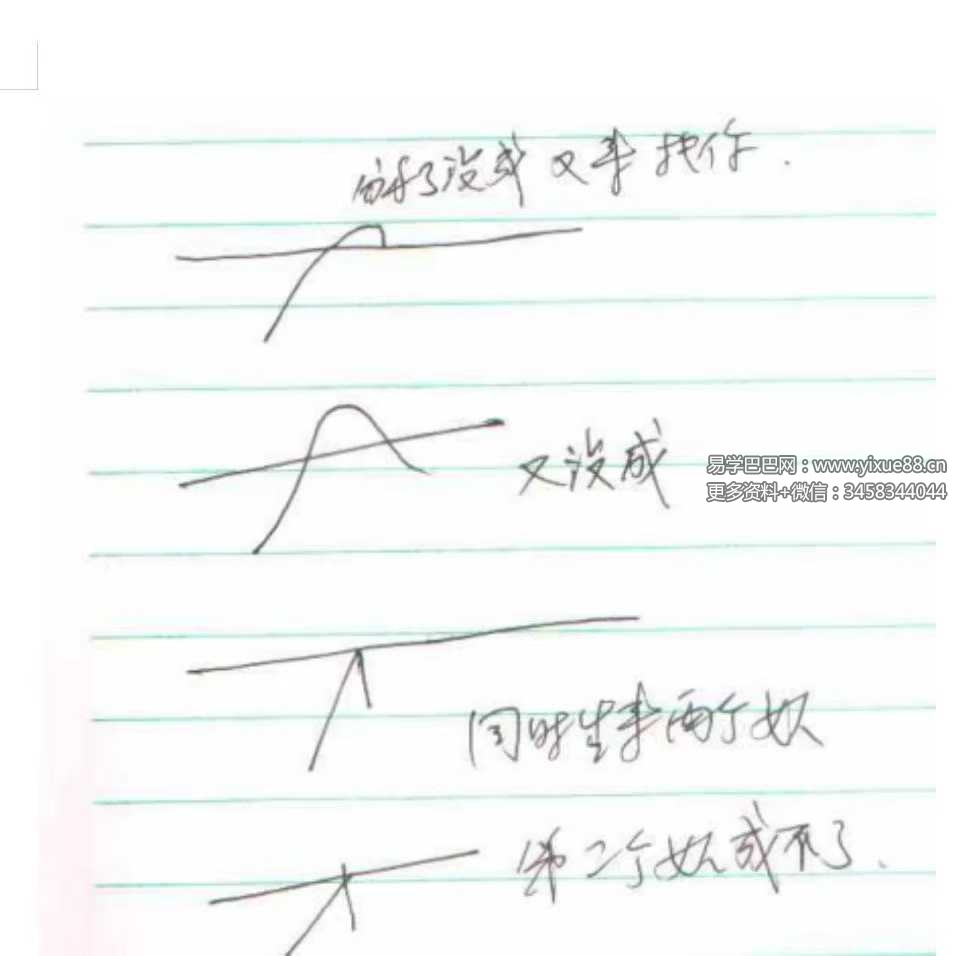 了没成又来找你.
又没成
易学巴巴网：www.yixue88.cn
更多资料+微信：3458344044
同时生来两个奴
第二个奴成不了.